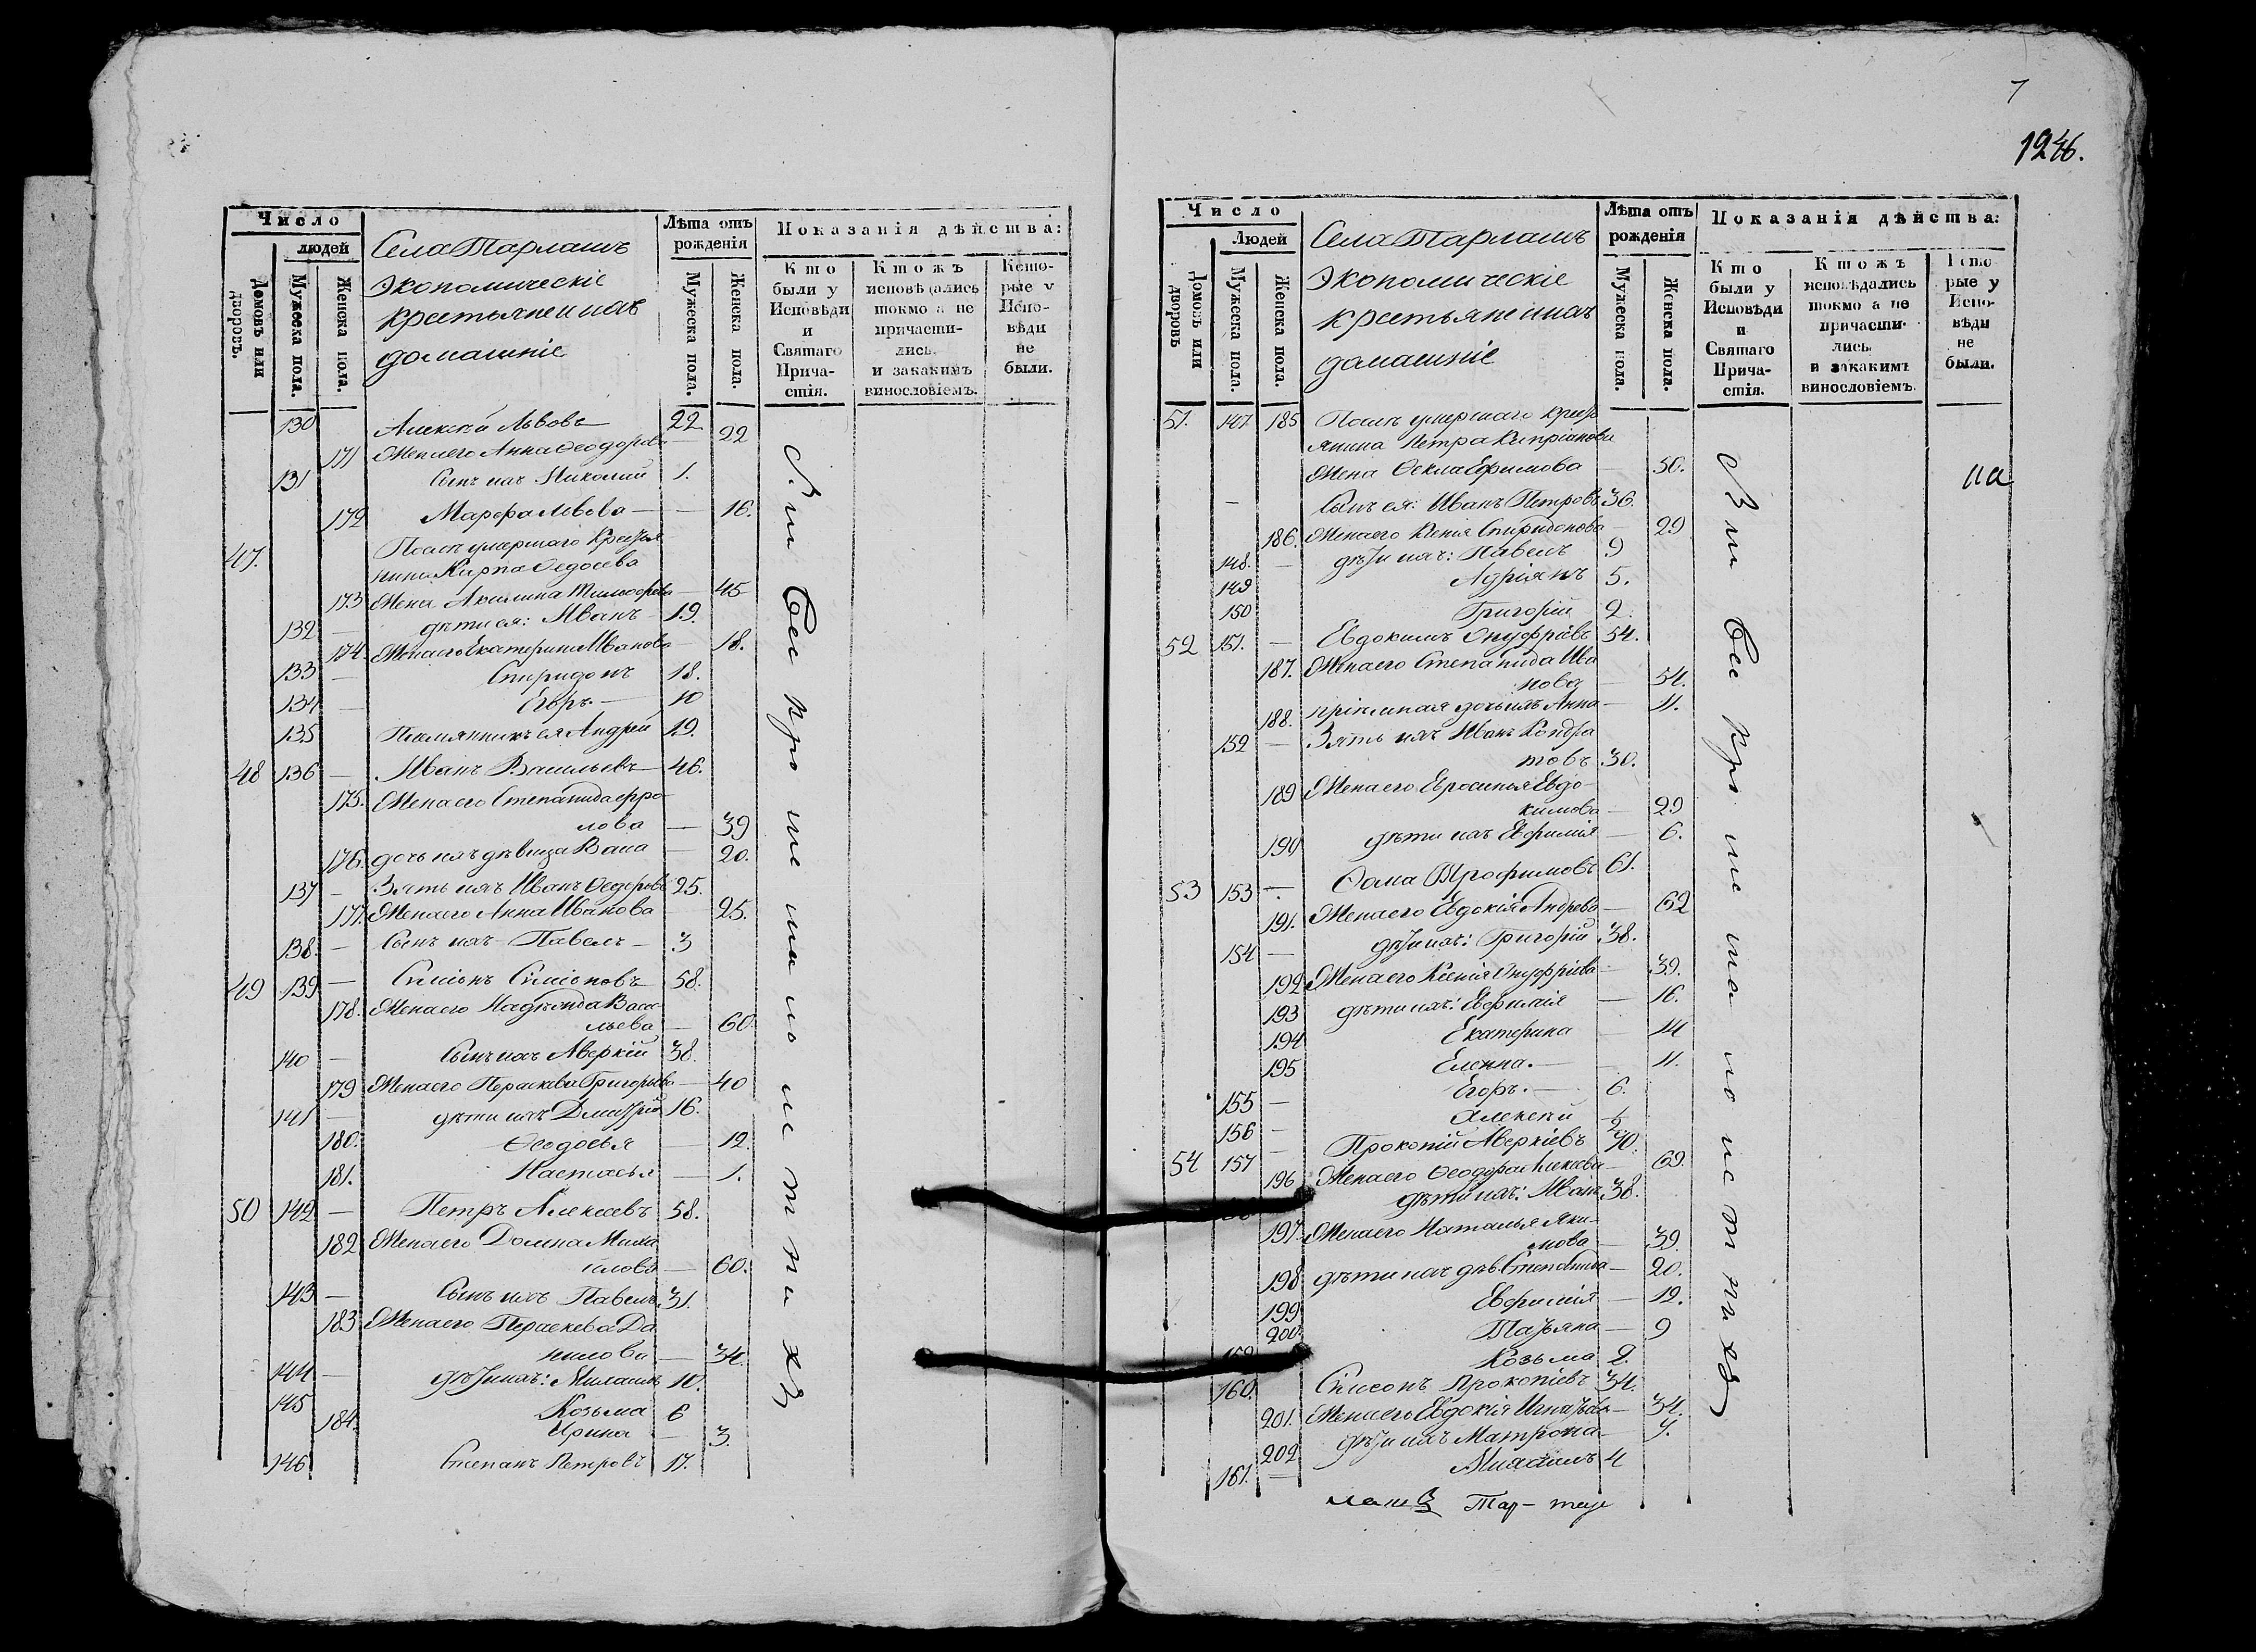 7
1246.
Число
людей
Домовъ или дворовъ.
Мужеска пола.
Женска пола.
Села Тарлашъ
Экономическіе
крестьяне и ихъ
домашніе
Лѣта отъ рожденія
Мужеска пола.
Женска пола.
Показанія дѣйства:
Кто были у Исповѣди и Святаго Прича-стія.
Ктожъ исповѣдались токмо а не причасти-лись. и закакимъ винословіемъ.
Кото-рые у Испо-вѣди не были.
130 Алексѣй Львовъ 22
171 Жена его Анна Ѳеодорова — 22
131 Сынъ ихъ Николай 1.
172 Марѳа Львова — — 16.
47. Послѣ умершаго крестья
нина Карпа Ѳедосѣева
173 Жена Акилина Тимоѳеева — 45
132 — дѣти ея: Иванъ 19.
174 Жена его Екатерина Иванова — 18.
133 — Спиридонъ 18.
134 — Егоръ. — 10
135 Племянникъ ея Андрей 19.
48 136 — Иванъ Васильевъ — 46.
175. Жена его Степанида Фро
лова — 39
176. дочь ихъ дѣвица Васа — 20.
137 — Зять ихъ Иванъ Ѳедоровъ 25.
177. Жена его Анна Иванова — 25.
138. — Сынъ ихъ Павелъ — 3
49 139. — Симіонъ Симіоновъ 58.
178. Жена его Надежда Васи
льева — 60.
140 — Сынъ ихъ Аверкій 38.
179 Жена его Пераскева Григорьева — 40
141 — дѣти ихъ Дмитрій 16.
180. Ѳеодосья — 12.
181. Настасья — 1.
50 142 — Петръ Алексеевъ 58.
182 Жена его Домна Миха
илова — 60.
143 — Сынъ ихъ Павелъ 31.
183 Жена его Пераскева Да
нилова — 34.
144 — дѣти ихъ: Михаилъ 10.
145 Козьма 6
184. Ирина — 3.
146 Степанъ Петровъ 17.
Число
Людей
Домовъ или дворовъ
Мужеска пола.
Женска пола.
Села Тарлашъ
Экономическіе
крестьяне и ихъ
домашніе
Лѣта отъ рожденія
Мужеска пола.
Женска пола.
Показанія дѣйства:
Кто были у Исповѣди и Святаго Прича-стія.
Ктожъ исповѣдались токмо а не причасти-лись. и закакимъ винословіемъ.
Кото-рые у Испо-вѣди не были.
51. 147. 185 Послѣ умершаго крест
янина Петра Кипріанова
Жена Ѳекла Ефимова — 50.
на
— Сынъ ея: Иванъ Петровъ 36.
186. Жена его Ксенія Спиридонова — 29
148. — дѣти ихъ: Павелъ 9
149 Адріянъ 5.
150 Григорій 2.
52 151. — Евдокимъ Онуфріевъ 54.
187. Жена его Степанида Ива
нова — 54.
188. пріемная дочь ихъ Анна — 11.
152 — Зять ихъ Иванъ Кондра
товъ 30.
189 Жена его Евросинья Евдо-
кимова — 29
190 дѣти ихъ Евфимія — 6.
53 153 — Ѳома Трофимовъ 61.
191. Жена его Евдокія Андреева — 62
154 — дѣти ихъ: Григорій 38.
192 Жена его Ксенія Онуфріева — 39.
193 дѣти ихъ: Евфимія — 16.
194 Екатерина — 14
195 Еленна. — — 11.
155 — Егоръ. — 6.
156 — Алексѣй ½
54 157 — Прокопій Аверкіевъ 70.
196 Жена его Ѳеодора Алексѣева — 69.
дѣти ихъ: Иванъ 38.
197 Жена его Наталья Яки-
мова — 39.
198 дѣти ихъ дѣв. Степанида — 20.
199 Евфимія — 12.
200. Татьяна — 9
Козьма 2.
160. Симеонъ Прокопіевъ 34.
201. Жена его Евдокія Игнатьева — 34.
202 дѣти ихъ Матрона — 7.
161. — Михаилъ 4